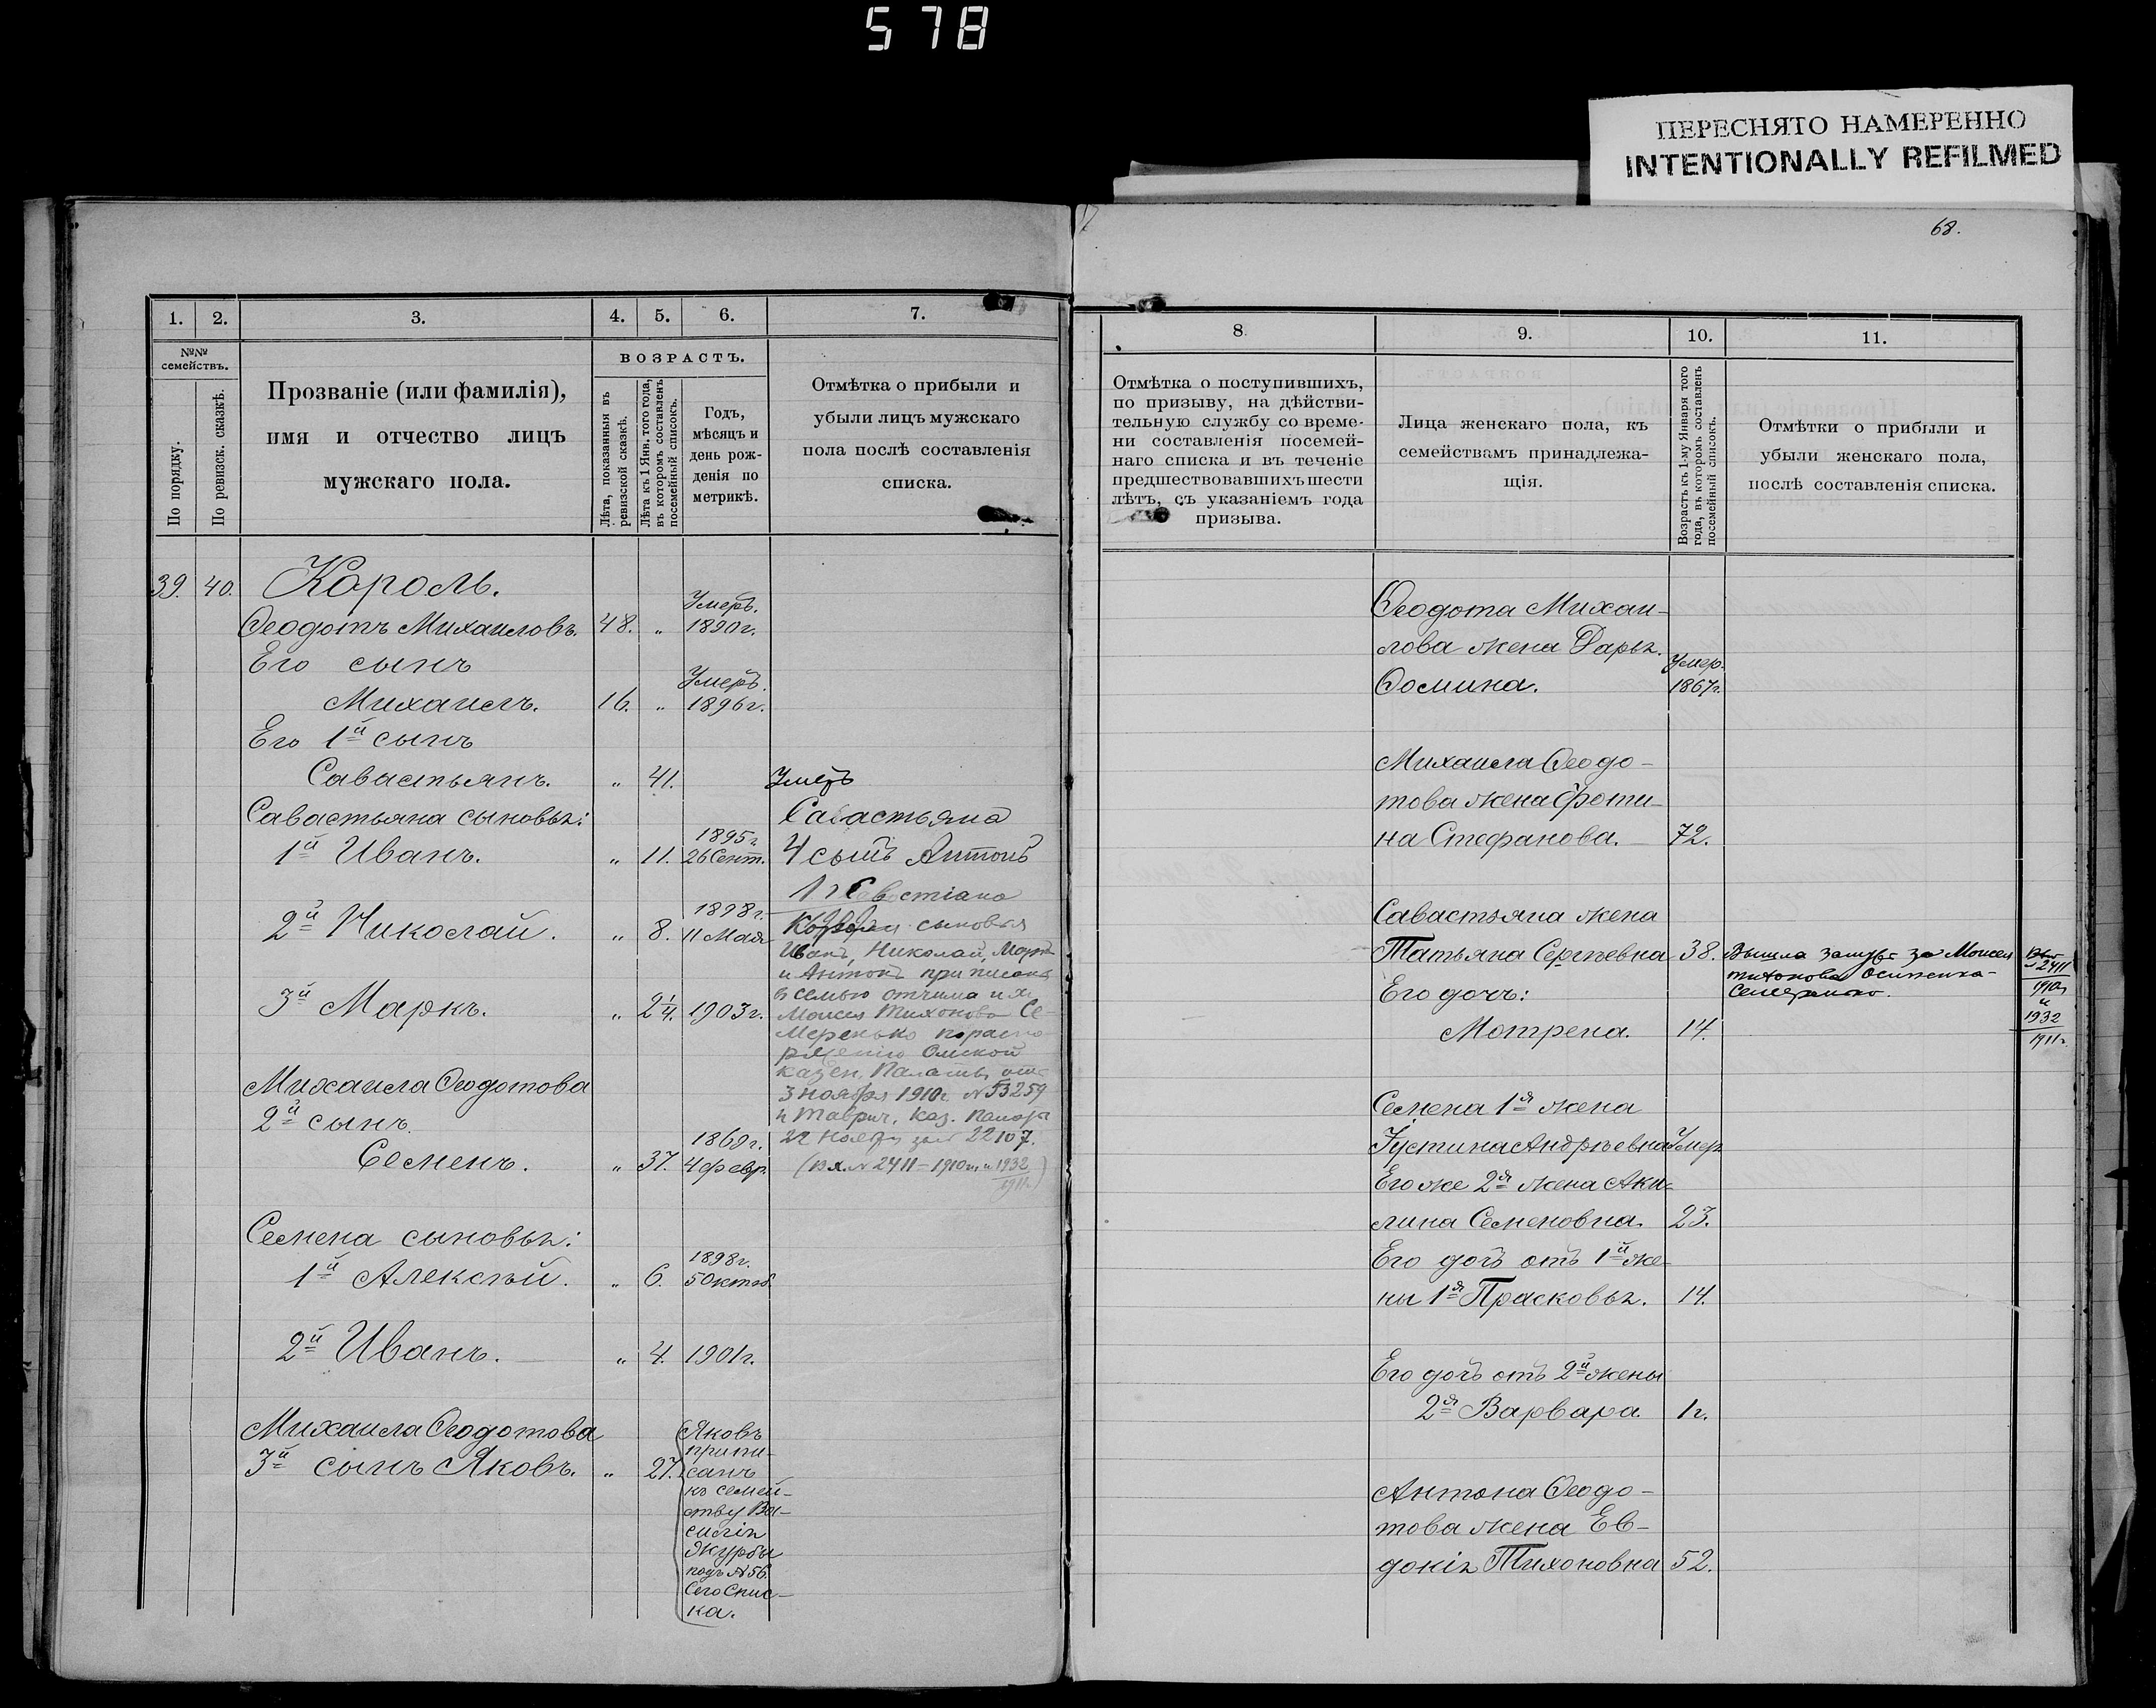 578
ПЕРЕСНЯТО НАМЕРЕННО
INTENTIONALLY REFILMED
68.
1. 2. 3. 4. 5. 6. 7.
№№ семействъ.
По порядку.
По ревизск. сказкѣ.
Прозваніе (или фамилія),
имя и отчество лицъ
мужскаго пола.
ВОЗРАСТЪ.
Лѣта, показанныя въ
ревизской сказкѣ.
Лѣта къ 1 Янв. того года,
въ которомъ составленъ
посемейный списокъ.
Годъ,
мѣсяцъ и
день рож-
денія по
метрикѣ.
Отмѣтка о прибыли и
убыли лицъ мужскаго
пола послѣ составленія
списка.
39. 40. Король.
Умеръ.
Ѳеодотъ Михаиловъ. 48. „ 1890 г.
Его сынъ
Умеръ.
Михаилъ. 16. „ 1896 г.
Его 1й сынъ
Савастьянъ. „ 41. Умеръ
Савастьяна сыновья: Савастьяна
1895 г.
1й Иванъ. „ 11. 26 Сент. 4 сынъ Антонъ
1898 г.
2й Николай. „ 8. 11 Мая сыновья
Иванъ, Николай, Маркъ
и Антонъ приписаны
въ семью отчима ихъ
3й Маркъ. „ 2¼. 1903 г. Моисея Тихонова Се-
меренько по распо-
ряженію Омской
казен. Палаты отъ
Михаила Ѳеодотова 3 ноября 1910 г. № 53259
2й сынъ. и Таврич. Каз. Палаты
1868 г. 22 22107.
Семенъ. „ 37. 4 февр. (вх. № 2411 – 1910 г. и 1932
1911 г.)
Семена сыновья:
1898 г.
1й Алексѣй. „ 6. 5 Октяб.
2й Иванъ. „ 4. 1901 г.
Михаила Ѳеодотова
3й сынъ Яковъ. „ 27.
(Яковъ
припи-
санъ
къ семей-
ству Ва-
силія
Журбы
подъ № 56.
Сего Спис-
ка.
8. 9. 10. 11.
Отмѣтка о поступившихъ,
по призыву, на дѣйстви-
тельную службу со време-
ни составленія посемей-
наго списка и въ теченіе
предшествовавшихъ шести
лѣтъ, съ указаніемъ года
призыва.
Лица женскаго пола, къ
семействамъ принадлежа-
щія.
Возрастъ къ 1-му Января того
года, въ которомъ составленъ
посемейный списокъ.
Отмѣтки о прибыли и
убыли женскаго пола,
послѣ составленія списка.
Ѳеодота Михаи-
лова жена Дарья.
Умер.
Ѳомина. 1867 г.
Михаила Ѳеодо-
това жена Фоти-
на Стефанова. 72.
Савастьяна жена
Татьяна Сергѣевна 38. Вышла замужъ за Моисея
Тихонова Осипенка-
Его дочь: Семеренко.
2411
1910 г.
и
1932
1911 г.
Мотрена. 14.
Семена 1я жена
Іустина Андрѣевна Умер.
Его же 2я жена Аки-
лина Семеновна. 23.
Его дочь отъ 1й же-
ны 1я Прасковья. 14.
Его дочь отъ 2й жены
2я Варвара 1 г.
Антона Ѳеодо-
това жена Ев-
докія Тихоновна 52.